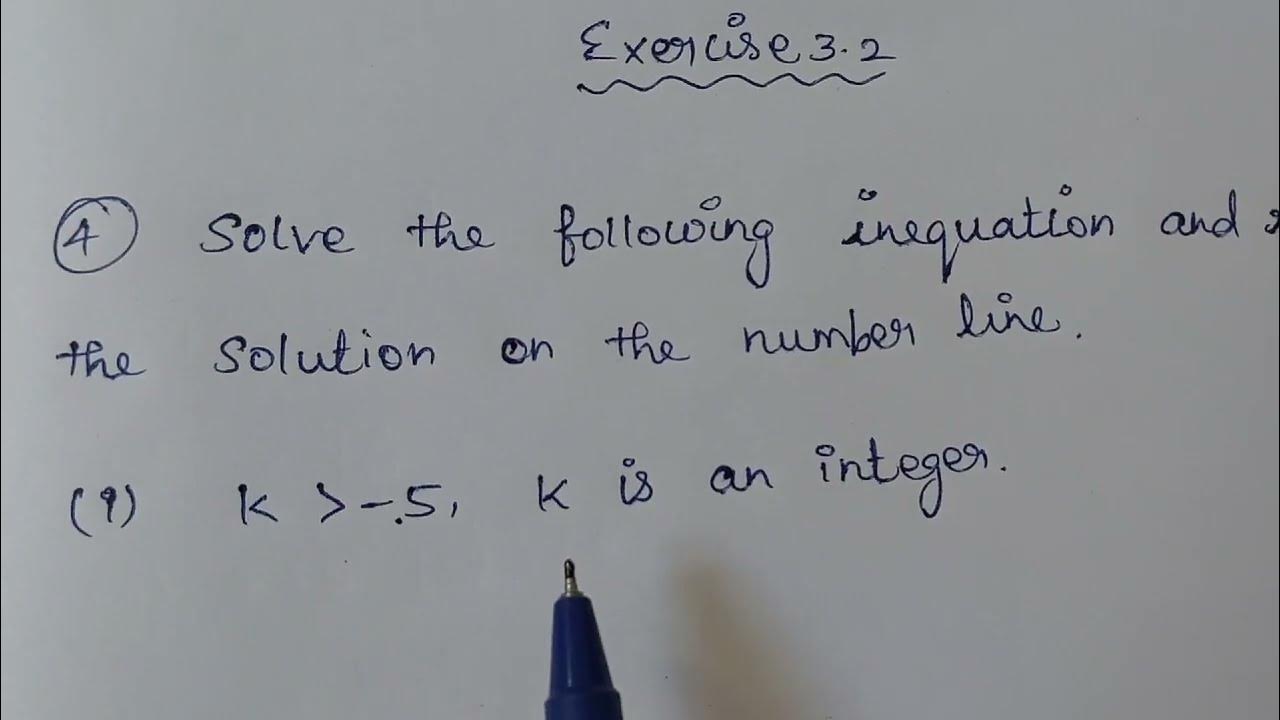 Exercise 3.2
4 Solve the following inequation and
the solution on the number line.
(i) k > -.5, k is an integer.